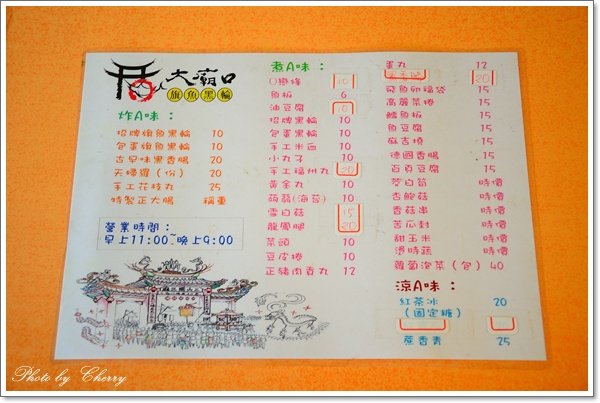 大廟口
旗魚黑輪
炸A味：
招牌旗魚黑輪 10
包蛋旗魚黑輪 10
古早味黑香腸 20
天婦羅（份） 20
手工花枝丸 25
特製正大腸 稱重
營業時間：
早上11:00~晚上9:00
煮A味：
10
魚板 6
油豆腐 10
招牌黑輪 10
包蛋黑輪 10
手工米血 10
小丸子 10
手工福州丸 20
黃金丸 10
蒟蒻(海苔) 10
雪白菇 15
龍鳳腿 20
菜頭 10
豆皮捲 10
正豬肉貢丸 12
蛋丸 12
20
飛魚卵福袋 15
高麗菜捲 15
鱈魚板 15
魚豆腐 15
麻吉燒 15
德國香腸 15
百頁豆腐 15
茭白筍 時價
杏鮑菇 時價
香菇串 時價
苦瓜封 時價
甜玉米 時價
燙時蔬 時價
蘿蔔泡菜（包）40
涼A味：
紅茶冰 20
（固定糖）
蔗香青 25
Photo by Cherry